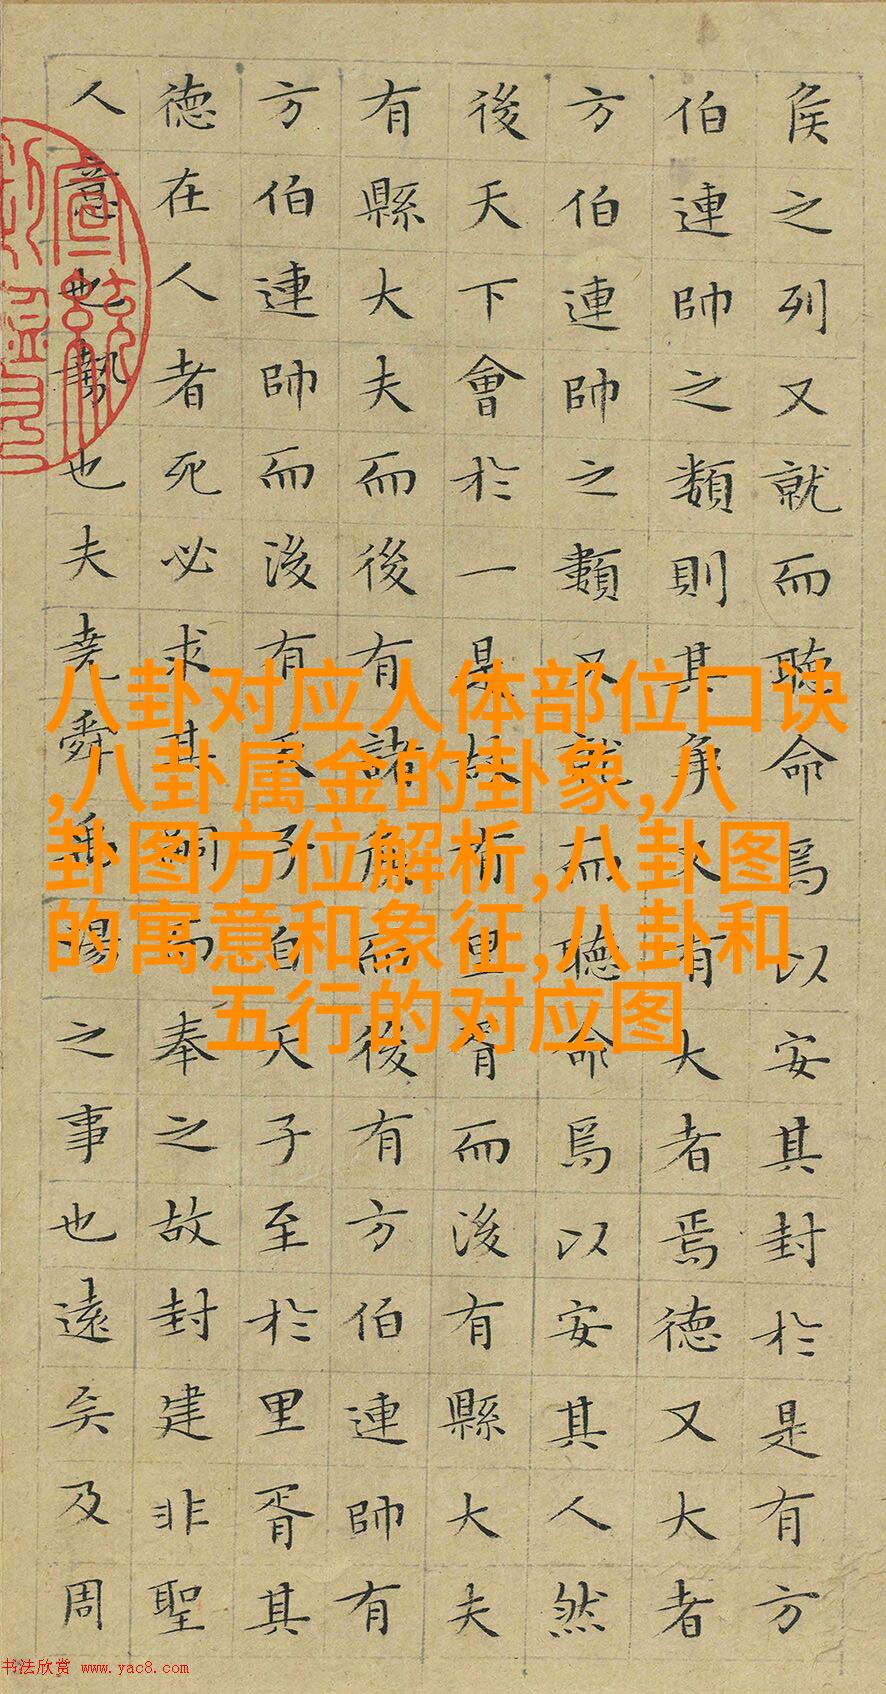 侯之列又就而聽命焉以安其封於是有方
伯連帥之類則其爭又有大者焉德又大者
方伯連帥之類又就而聽命焉以安其人然
後天下會於一是故有里胥而後有縣大夫
有縣大夫而後有諸侯而後有方伯連帥有
方伯連帥而後有天子自天子至於里胥其
德在人者死必求其嗣而奉之故封建非聖
人意也勢也夫堯舜禹湯之事也遠矣及周
八卦对应人体部位口诀
,八卦属金的卦象,八
卦图方位解析,八卦图
的寓意和象征,八卦和
五行的对应图
书法欣赏 www.yac8.com